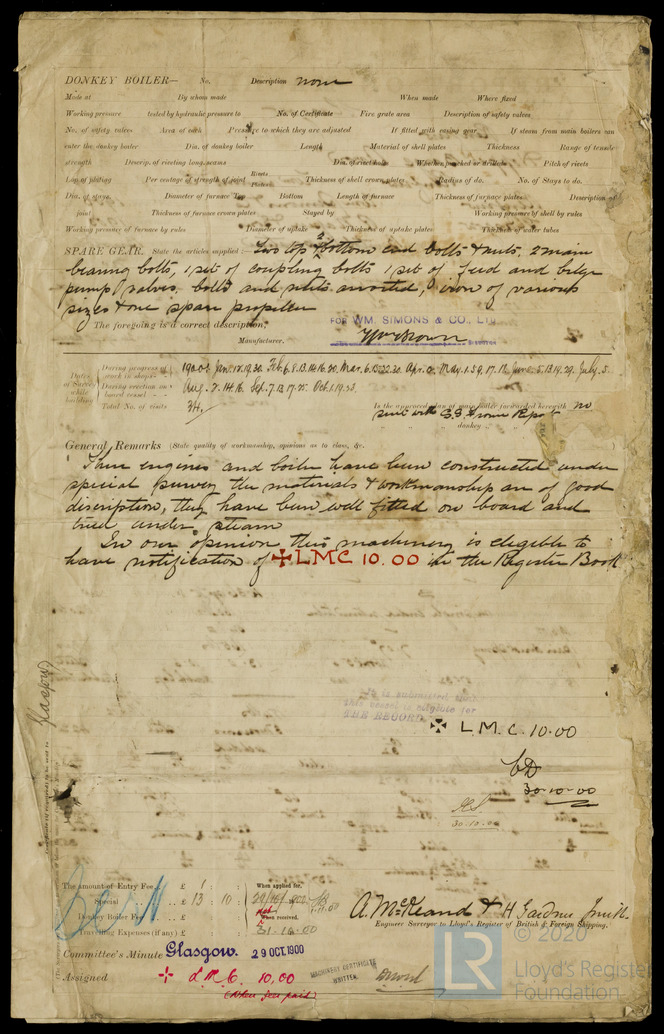 DONKEY BOILER— No. Description none
Made at By whom made When made Where fixed
Working pressure tested by hydraulic pressure to No. of Certificate Fire grate area Description of safety valves
No. of safety valves Area of each Pressure to which they are adjusted If fitted with easing gear If steam from main boilers can
enter the donkey boiler Dia. of donkey boiler Length Material of shell plates Thickness Range of tensile
strength Descrip. of riveting long. seams Dia. of rivet holes Whether punched or drilled Pitch of rivets
Lap of plating Per centage of strength of joint Rivets Plates Thickness of shell crown plates Radius of do. No. of Stays to do.
Dia. of stays. Diameter of furnace Top Bottom Length of furnace Thickness of furnace plates Description of
joint Thickness of furnace crown plates Stayed by Working pressure of shell by rules
Working pressure of furnace by rules Diameter of uptake Thickness of uptake plates Thickness of water tubes
SPARE GEAR. State the articles supplied:— Two top & 2 bottom end bolts & nuts, 2 main
bearing bolts, 1 set of coupling bolts 1 set of feed and bilge
pump valves. bolts and nuts assorted, iron of various
sizes & one spare propeller
The foregoing is a correct description,
FOR WM. SIMONS & CO., LTD
Manufacturer. Wm Brown DIRECTOR
Dates of Survey while building
During progress of work in shops— 1900: Jan. 17. 19. 30. Feb. 6. 8. 13. 14. 16. 20. Mar. 6. 13. 22. 30. Apr. 17. May. 1. 5. 9. 17. 18. June. 5. 13. 19. 29. July. 5.
During erection on board vessel— Aug. 7. 14. 16. Sep. 7. 13. 17. 25. Oct. 1. 19. 23.
Total No. of visits 34.
Is the approved plan of main boiler forwarded herewith no
sent with S.S. Report
" " " donkey " " "
General Remarks (State quality of workmanship, opinions as to class, &c.
These engines and boiler have been constructed under
special survey the materials & workmanship are of good
discription, they have been well fitted on board and
tried under steam
In our opinion this machinery is eligible to
have notification of ✠ LMC 10.00 in the Register Book
It is submitted that
this vessel is eligible for
THE RECORD
✠ L.M.C. 10.00
30.10.00
30.10.00
Glasgow
The amount of Entry Fee. £ 1 : :
Special £ 13 : 10 :
Donkey Boiler Fee £ : :
Travelling Expenses (if any) £ : :
When applied for.
When received.
31.10.00
A. McKeand & H. Gardner Smith
Engineer Surveyor to Lloyd's Register of British & Foreign Shipping.
Committee's Minute Glasgow. 29 OCT. 1900
Assigned + L.M.C. 10.00
(When fees paid)
MACHINERY CERTIFICATE
WRITTEN.
LR
© 2020
Lloyd's Register
Foundation